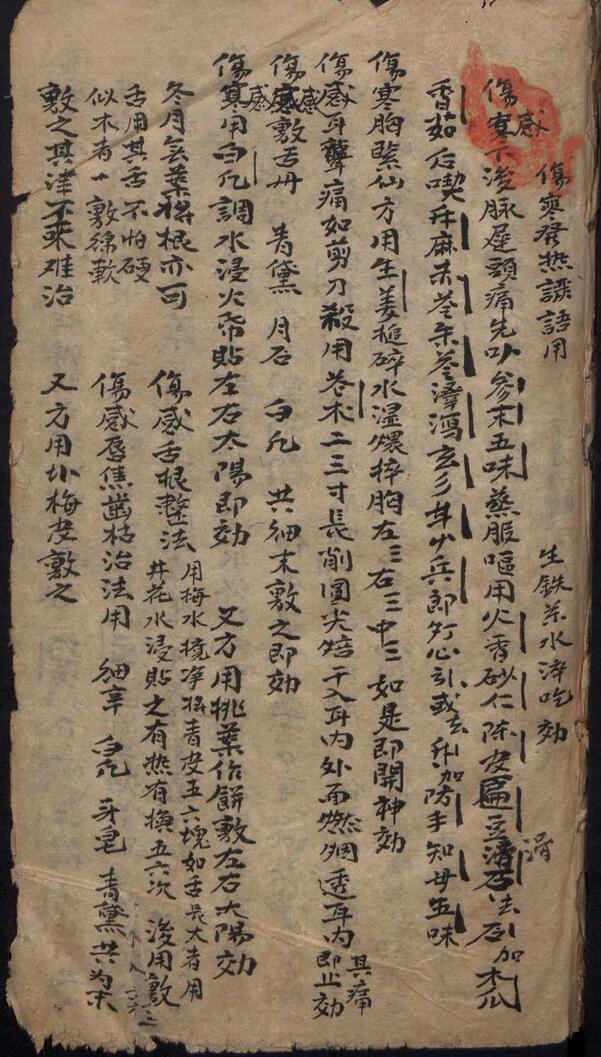 傷寒發热譫語用 生鉄茶水淬吃効
傷感寒示後脉遅頭痛先吵參末五味蒸服嘔用火香砂仁陳皮匾豆滑石法石加木瓜
香茹后喫升麻赤苓朱苓澤瀉玄参甘少兵郎灯心引或去升加防手知母五味
傷寒胸緊仙方用生姜搥碎水湿煨捽胸左三右三中三如是即開神効
傷感耳聾痛如剪刀殺用苍术二三寸長削圓尖焙干入耳内外面燃烟透耳内其痛即止効
傷感敷舌丹 青黛 月石 白凡 共細末敷之即効
傷寒感用白凡調水浸火帋貼左右太陽即効 又方用桃葉作餅敷左右太陽効
冬月無葉將根亦可 傷感舌根整法 用梅水境净將青皮五六塊如舌長大者用
舌用其舌不怕硬 井花水浸貼之有热有換五六次 後用敷
似木者一敷綿軟 傷感唇焦齒枯治法用 細辛 白凡 牙皂 青黛共为末
敷之其津不来难治 又方用小梅皮敷之